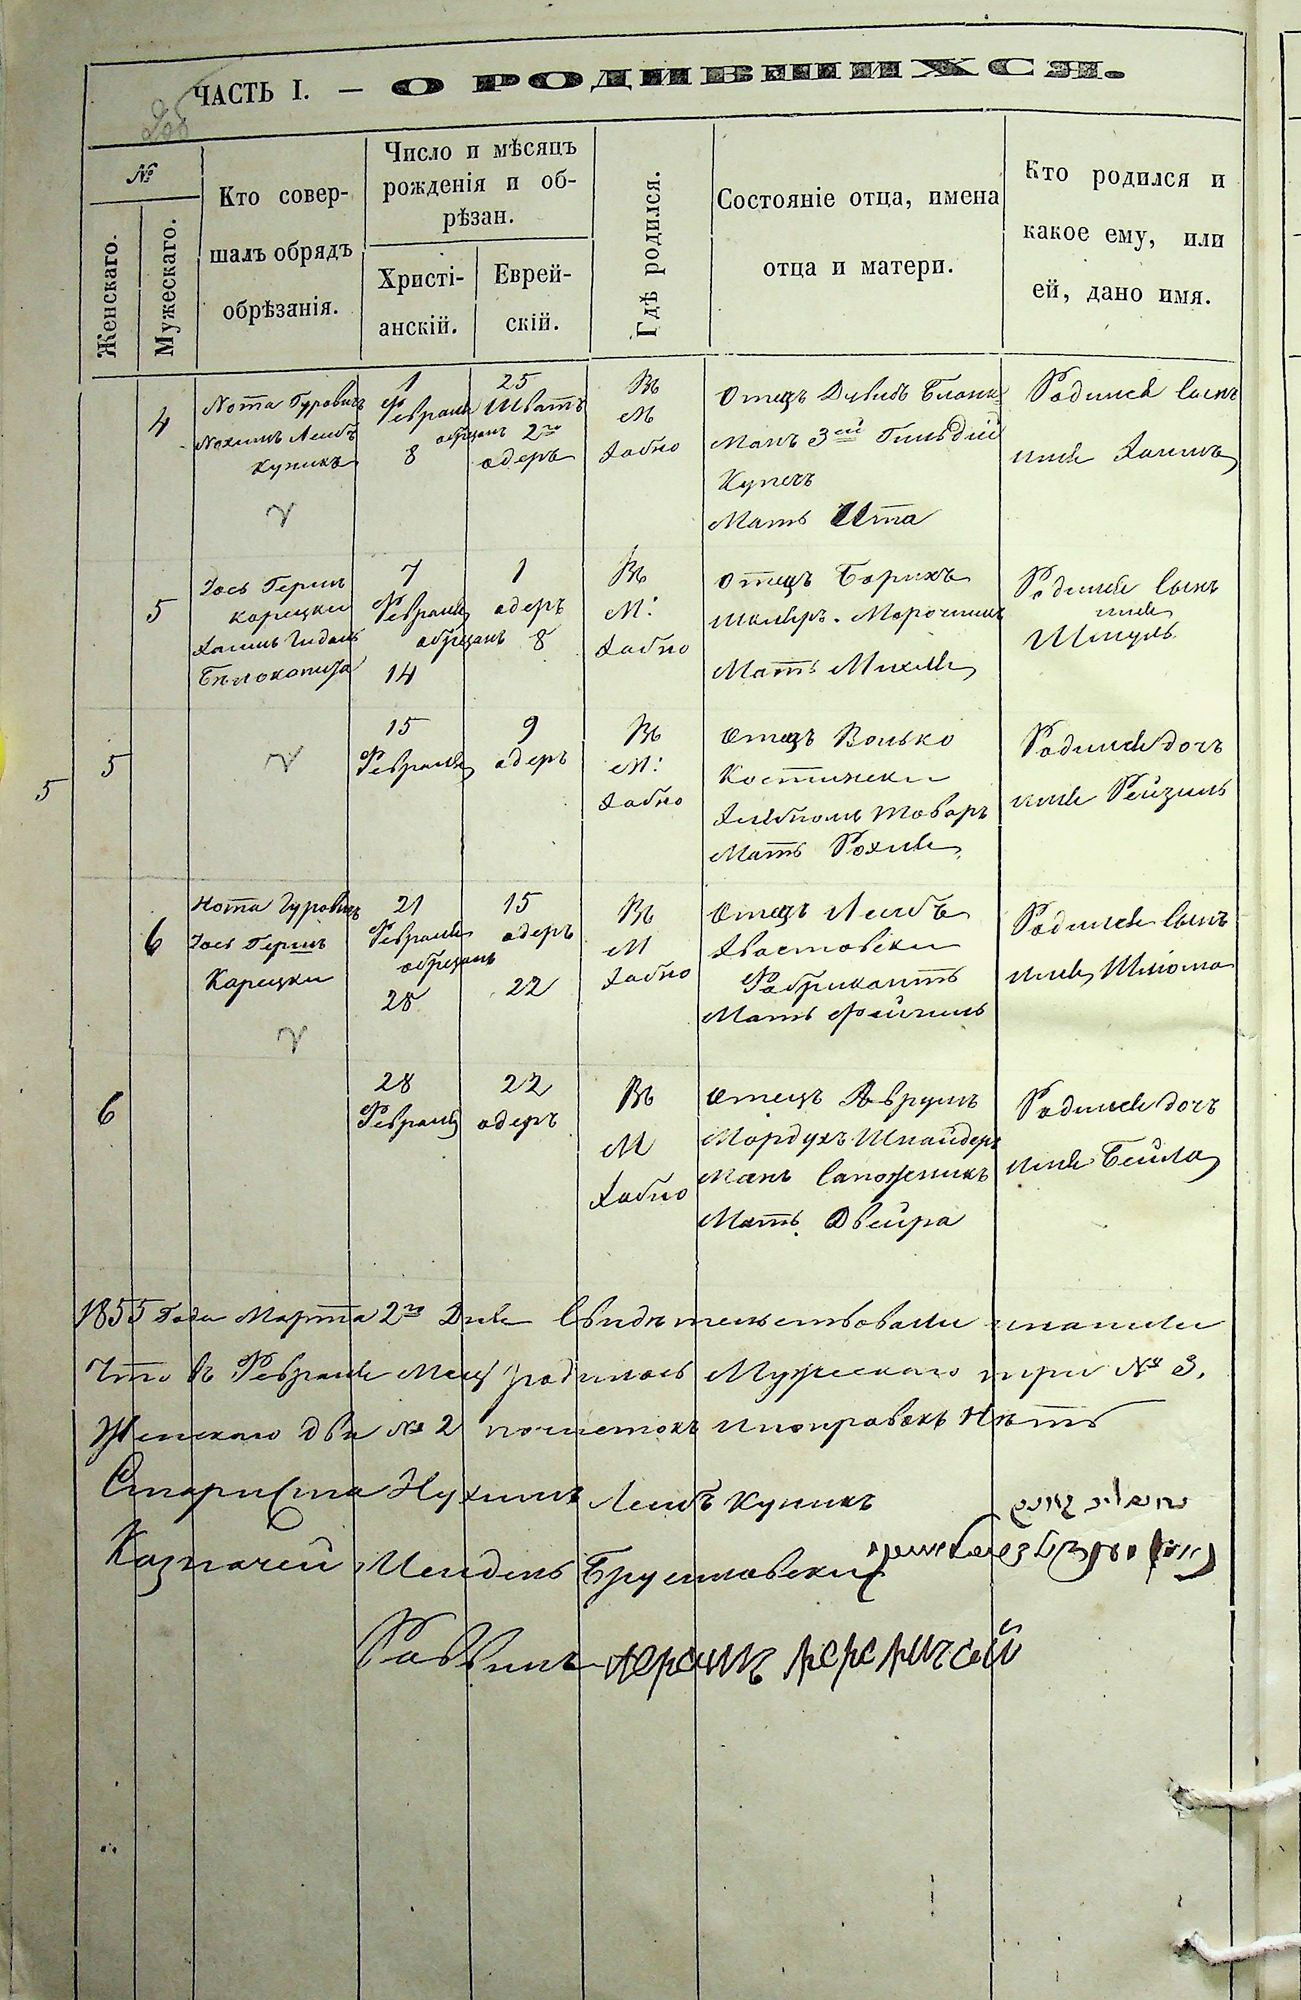 ЧАСТЬ I. — О РОДИВШИХСЯ.
№
Женскаго.
Мужескаго.
Кто совер-
шалъ обрядъ
обрѣзанія.
Число и мѣсяцъ
рожденія и об-
рѣзан.
Христі-
анскій.
Еврей-
скій.
Гдѣ родился.
Состояніе отца, имена
отца и матери.
Кто родился и
какое ему, или
ей, дано имя.
4
Нота Гуровичъ
Нохимъ Лейбъ
Куникъ
1
Февраля
обрезанъ
8
25
Шватъ
2го
адеръ
Въ
М
Хабно
Отецъ Дувидъ
3ей Гильдій
Купечъ
Мать Ита
Родился Сынъ
имя Хаимъ
5
Іось Герш
Карецки
Хаимъ
Белокопита
7
Февраля
обрезанъ
14
1
адеръ
8
Въ
М:
Хабно
Отецъ Борихъ
Марочникъ
Мать Михля
Родился Сынъ
имя
Шмуль
5
5
15
Февраля
9
адеръ
Въ
М:
Хабно
Отецъ Волько
Костински
Мать Рохля
Родился дочъ
имя Рейзиль
6
Нота Гуровичъ
Іось Герш
Карецки
21
Февраля
обрезанъ
28
15
адеръ
22
Въ
М
Хабно
Отецъ Лейбъ
Хвастовски
Фабрикантъ
Мать Фейгиль
Родился Сынъ
имя Шлиома
6
28
Февраля
22
адеръ
Въ
М
Хабно
Отецъ Аврумъ
Мордухъ Шнайдер
манъ Сапожникъ
Мать Двейра
Родился дочъ
имя Бейла
1855 Года Марта 2го Дня Свидетельствовали и нашли
Что в Феврале Мец родилось Мужескаго три № 3.
Женскаго два № 2 почисток и поправокъ Нетъ
Староста Нухимъ Лейбъ Куникъ
Казначей Мендель Брусиловски
Раввинъ